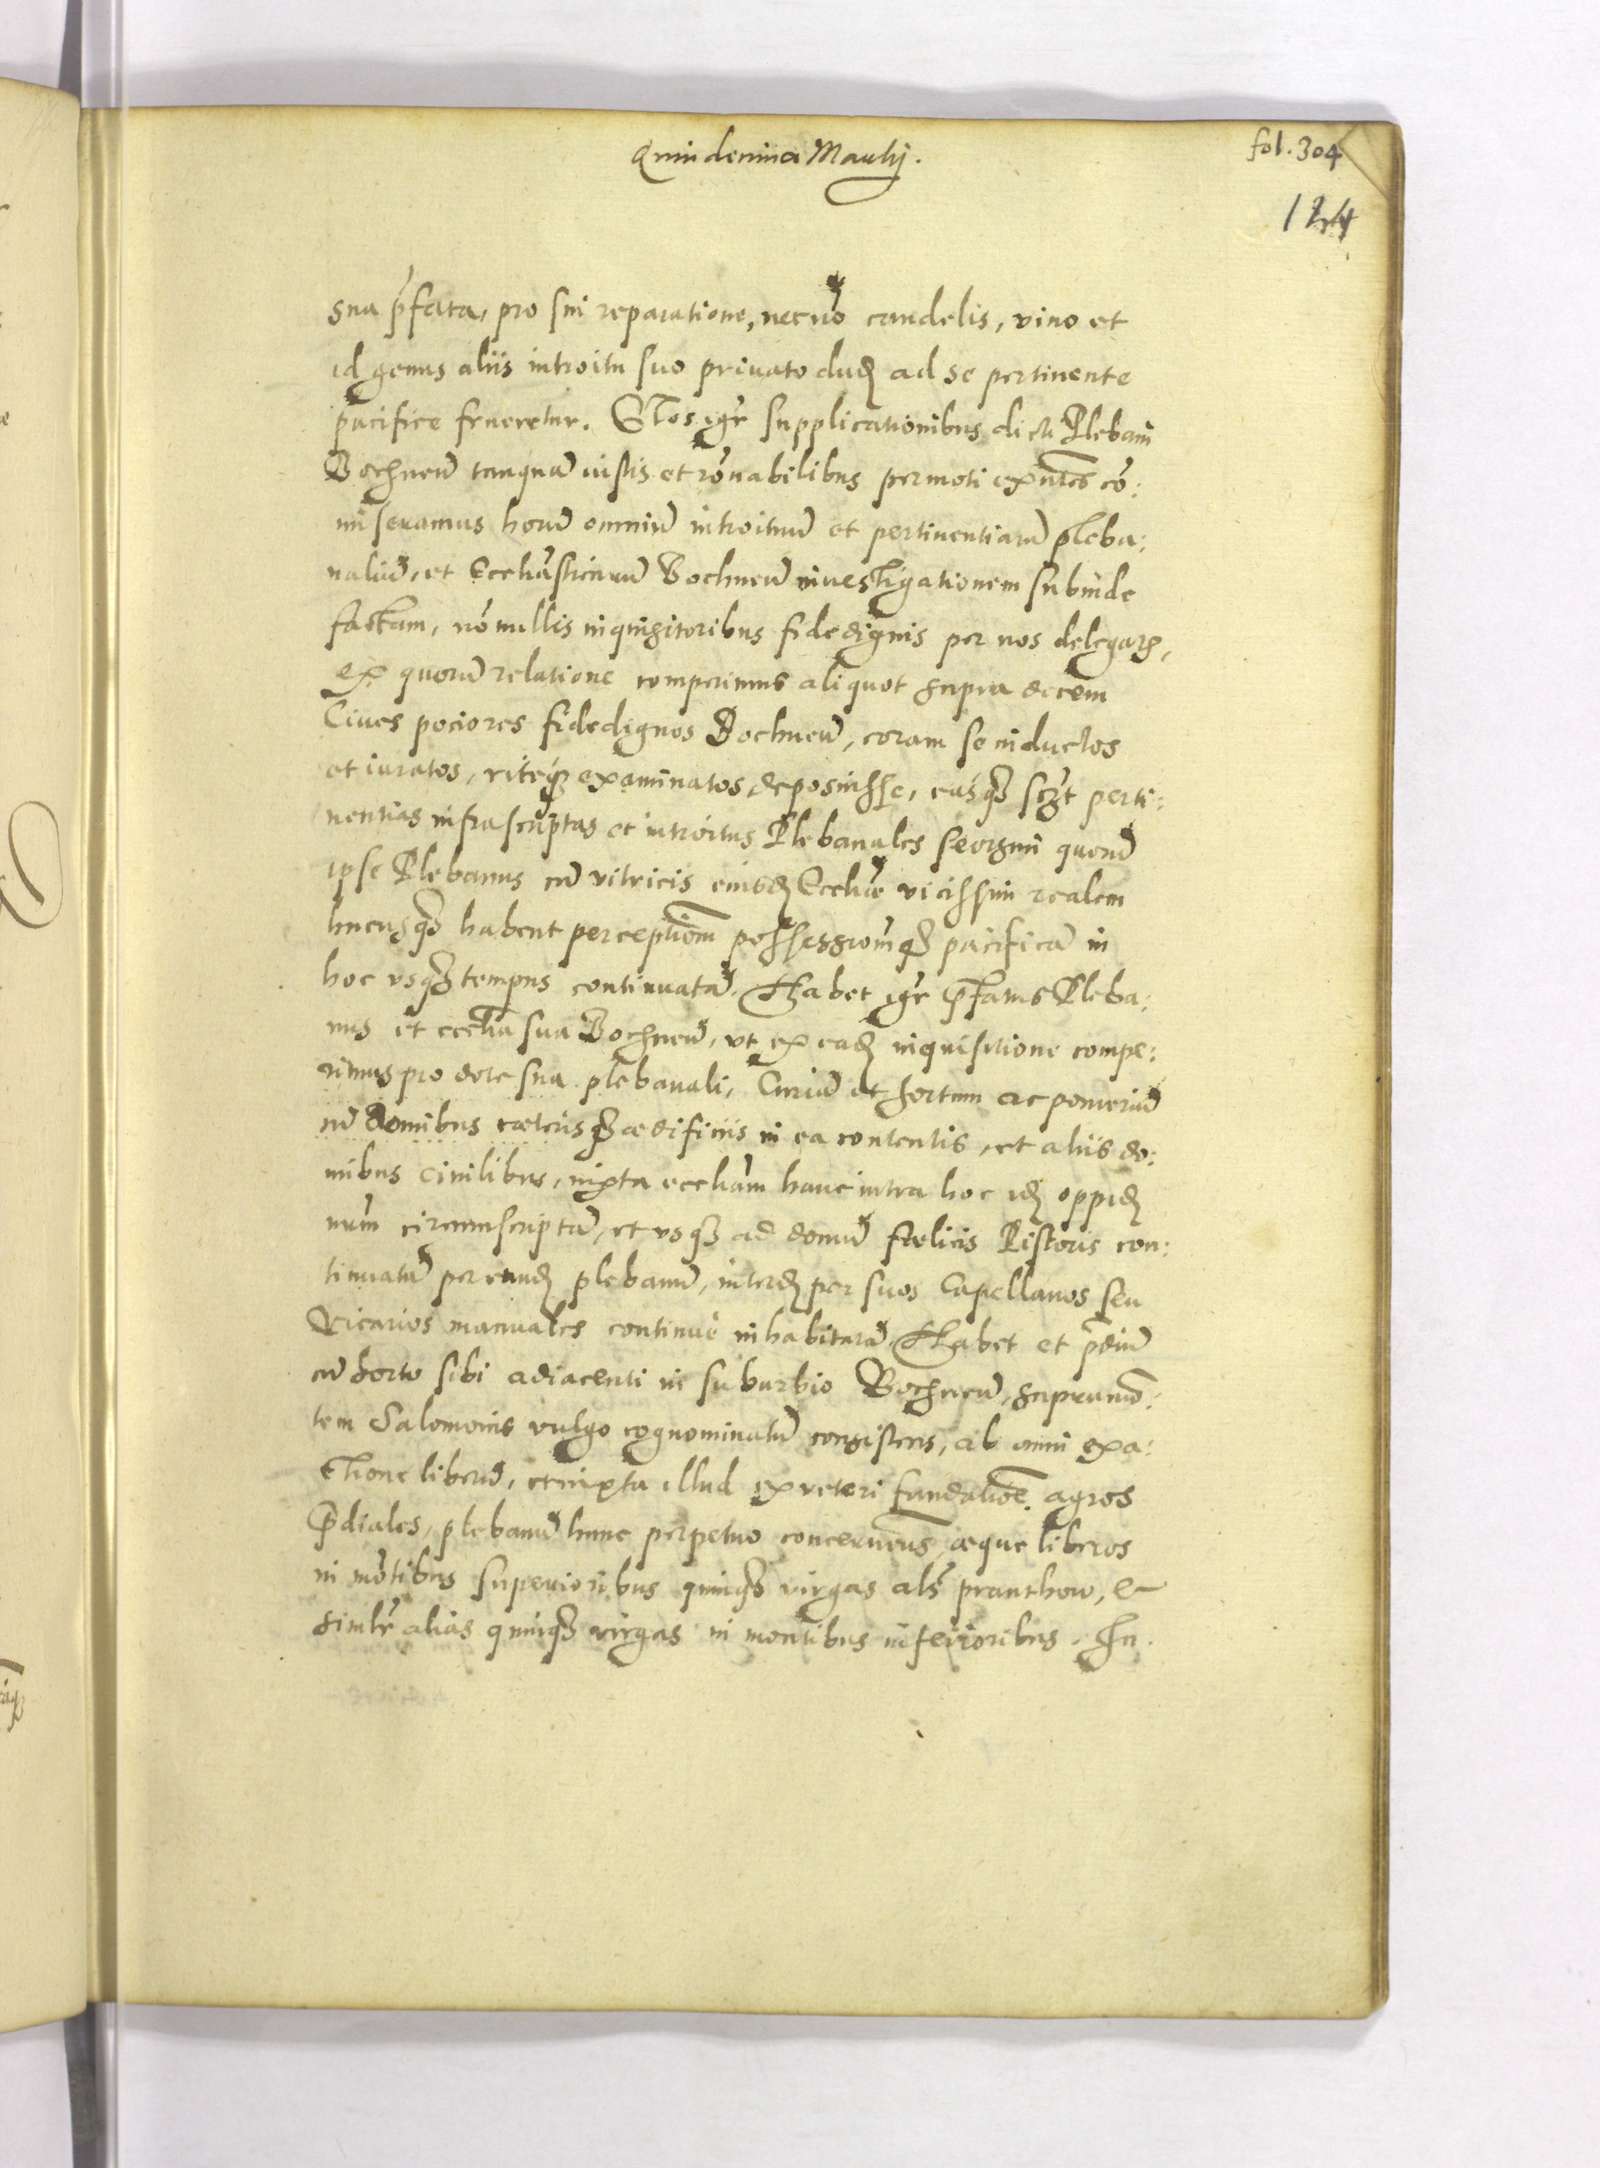 Quindenna Martij.
fol. 304
124
sua p̃fata, pro sui reparatione, necnõ candelis, vino et
id genus aliis introitu suo priuato dudȝ ad se pertinente
pacifice frueretur. Nos igr̃ supplicationibus dicti Plebani
Bochneñ tanquã iustis et rõnabilibus permoti ex nũtes cõ:
miseramus horũ omniũ introituũ et pertinentiarũ pleba:
naliũ, et Eccliãsticarũ Bochneñ inuestigationem subinde
factam, nõnullis inquisitoribus fidedignis per nos delegatis,
ex quorũ relatione comperimus aliquot supra decem
Ciues pociores fidedignos Bochneñ, coram se inductos
et iuratos, riteqȝ examinatos deposuisse, easqȝ scȝt perti:
nentias infrascriptas et introitus Plebanales seorsim quond̃
ipse Plebanus cũ vitricis eiusdȝ Eccliæ vicissim realem
hucusqȝ habent perceptionẽ possessionẽqȝ pacificã in
hoc vsqȝ tempus continuatã. Habet igr̃ p̃fatus Pleba:
nus et ecclia sua Bochneñ, vt ex eadȝ inquisitione compe:
rimus pro dote sua plebanali, Curiã et hortum ac pomeriũ
cũ domibus cæterisqȝ ædificiis in ea contentis, et aliis do:
mibus ciuilibus, iuxta eccliam hanc intra hoc idȝ oppidȝ
nrũm circumscriptã, et vsqȝ ad domũ fœlicis Pistoris con:
tinuatũ per eundȝ plebanũ, interdȝ per suos Capellanos seu
Vicarios manuales continuè inhabitatã. Habet et p̃diũ
cũ horto sibi adiacenti in suburbio Bochneñ, supra mõ:
tem Salomonis vulgo cognominatũ consistens, ab omni exa:
ctione liberũ, et iuxta illud ex veteri fundatiõe agros
p̃diales, plebanũ hunc perpetuo concerneñs, æque liberos
in mõtibus superioribus quinqȝ virgas als̃ pranthow, et
simlr̃ alias quinqȝ virgas in montibus inferioribus. In.